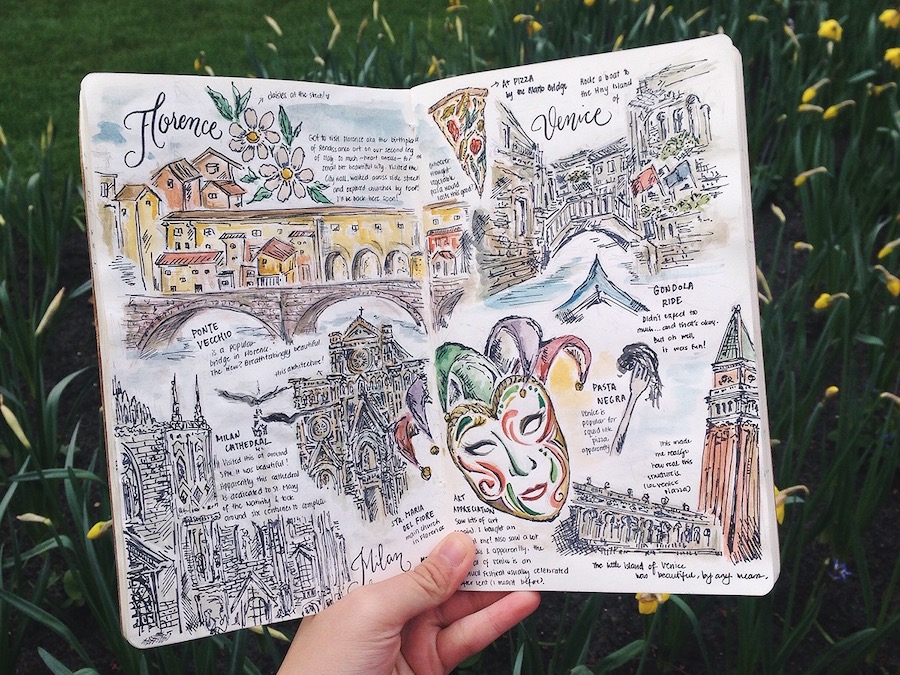 Florence
daisies at the
Got to visit Florence aka the birthplace
of Renaissance art on our second leg
of Italy. So much
small but beautiful city. Visited the
City Hall, walked across side streets
and explored churches by foot!
I'll be back here soon!
PONTE
VECCHIO
is a popular
bridge in Florence.
The view? Breathtakingly beautiful
this architecture!
MILAN
CATHEDRAL
Visited this at around
5PM. It was beautiful!
apparently this cathedral
is dedicated to St Mary
of the Nativity & took
around six centuries to complete
STA. MARIA
DEL FIORE
main church
in Florence
Milan
At PIZZA
by the Rialto Bridge
Rode a boat to
the tiny island
of
Venice
thought
vegetable
pizza would
taste this good?
GONDOLA
RIDE
Didn't expect too
much... and that's okay.
But oh well,
it was fun!
PASTA
NEGRA
Venice is
popular for
squid ink
pizza,
apparently
This made
me realize
how real this
structure is
ART
APPRECIATION
Saw lots of art
I bought an
me! Also saw a lot
& apparently, the
of Venice is an
festival usually celebrated
lent (I missed it before).
The little island of Venice
was beautiful, by any means.